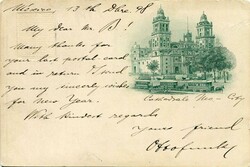 México, 13th Dbre. 98
My dear Mr. B!
Many thanks for
your last postal card
and in return I send
you my sincerely wishes
for New Year.
With kindest regards
yours friend
Cathedrale Mex - City